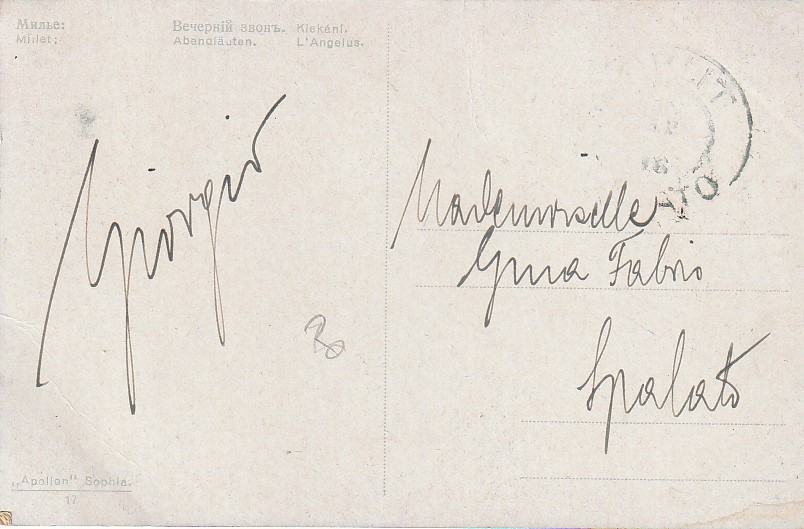 Милье: Вечерній звонъ. Klekání.
Millet: Abendläuten. L'Angelus.
Giorgio
Mademoiselle
Gina Fabrio
Spalato
„Apollon" Sophia.
17